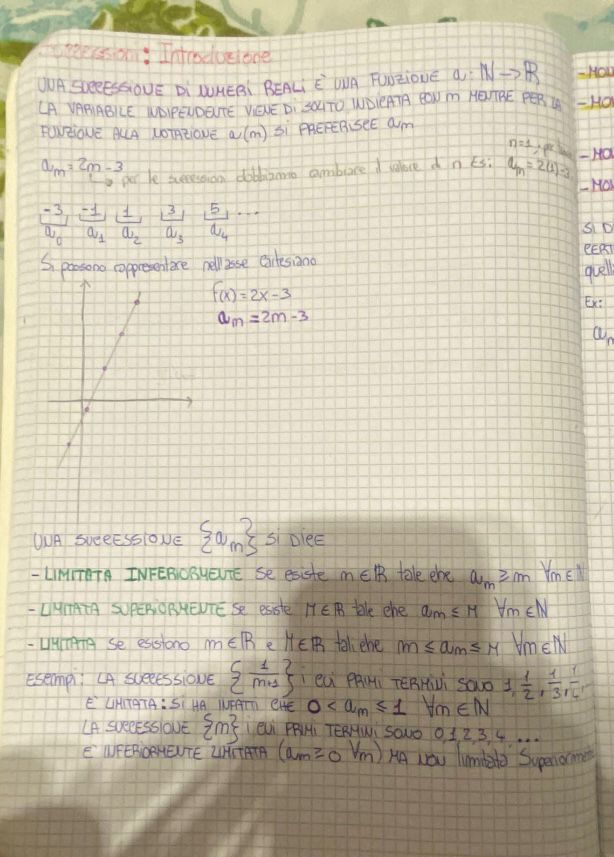 Successioni: Introduzione
UNA SUCCESSIONE DI NUMERI REALI È UNA FUNZIONE a: ℕ → ℝ
LA VARIABILE INDIPENDENTE VIENE DI SOLITO INDICATA CON n MENTRE PER LA
FUNZIONE ALLA NOTAZIONE a(n) SI PREFERISCE aₙ
aₙ = 2n - 3
n=1, per
↳ per le successioni dobbiamo cambiare il valore di n Es: aₙ = 2(1)-3
-3 -1 1 3 5 ...
a₀ a₁ a₂ a₃ a₄
Si possono rappresentare nell'asse cartesiano
f(x) = 2x - 3
aₙ = 2n - 3
UNA SUCCESSIONE {aₙ} SI DICE
- LIMITATA INFERIORMENTE se esiste m ∈ ℝ tale che aₙ ≥ m ∀n ∈ ℕ
- LIMITATA SUPERIORMENTE se esiste M ∈ ℝ tale che aₙ ≤ M ∀n ∈ ℕ
- LIMITATA se esistono m ∈ ℝ e M ∈ ℝ tali che m ≤ aₙ ≤ M ∀n ∈ ℕ
Esempi: LA SUCCESSIONE {1/n+1} i CUI PRIMI TERMINI SONO 1, 1/2, 1/3, 1/4,
È LIMITATA: SI HA INFATTI CHE 0 < aₙ ≤ 1 ∀n ∈ ℕ
LA SUCCESSIONE {n} i CUI PRIMI TERMINI SONO 0,1,2,3,4,...
È INFERIORMENTE LIMITATA (aₙ ≥ 0 ∀n) MA NON limitata Superiormente
- MON
- MON
- MON
- MON
SI D
CERT
quell
Ex:
aₙ